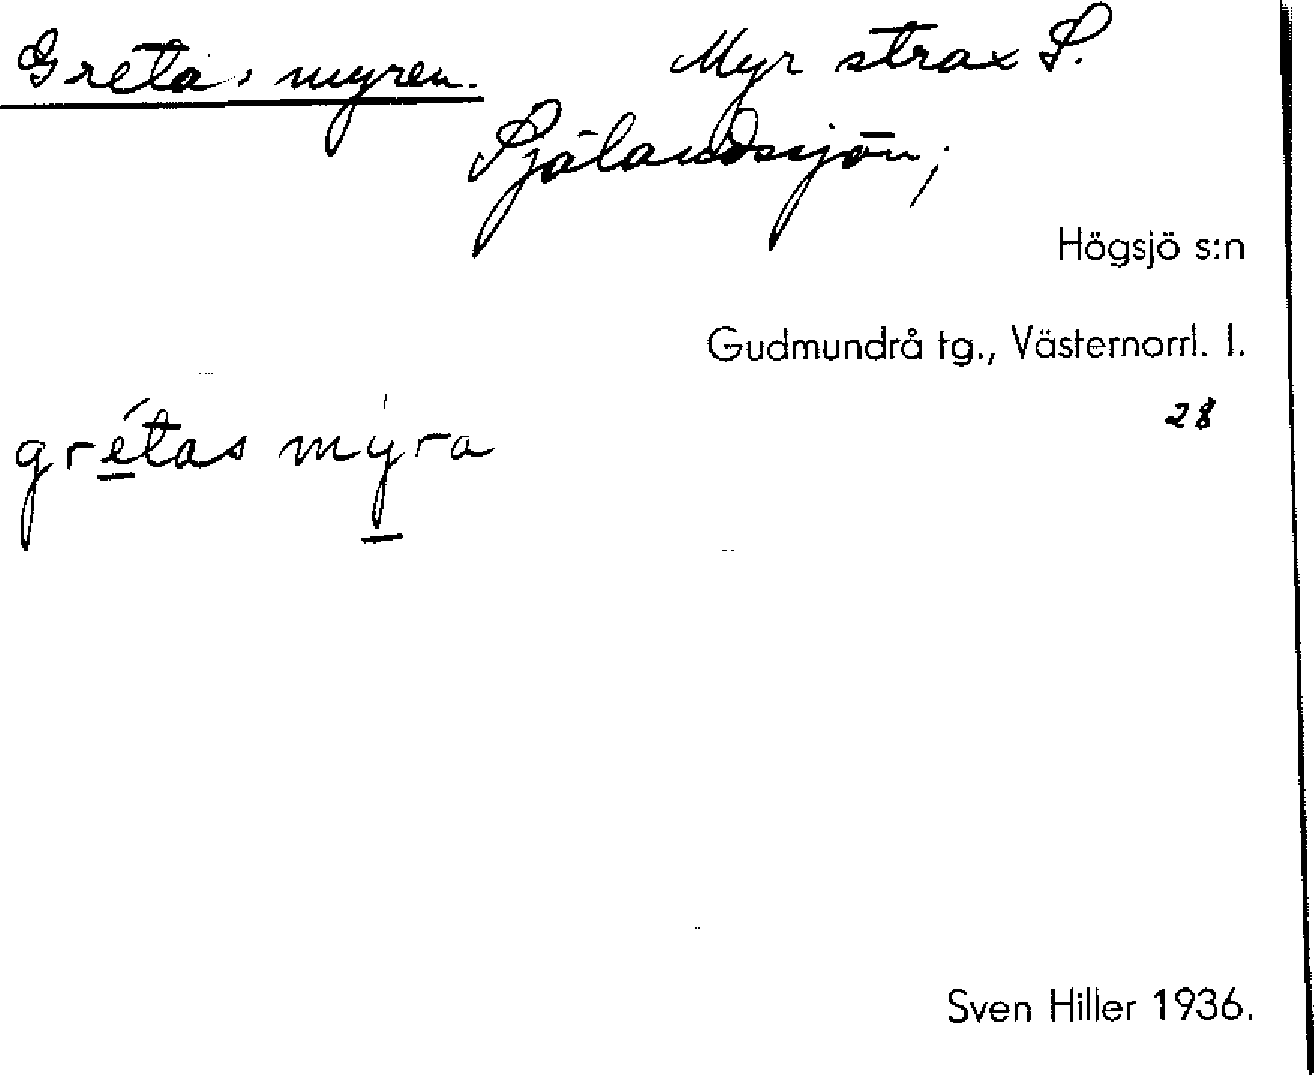 Greta, myren. Myr strax S.
Själandssjön;
Högsjö s:n
Gudmundrå tg., Västernorrl. l.
28
grétas myra
Sven Hiller 1936.